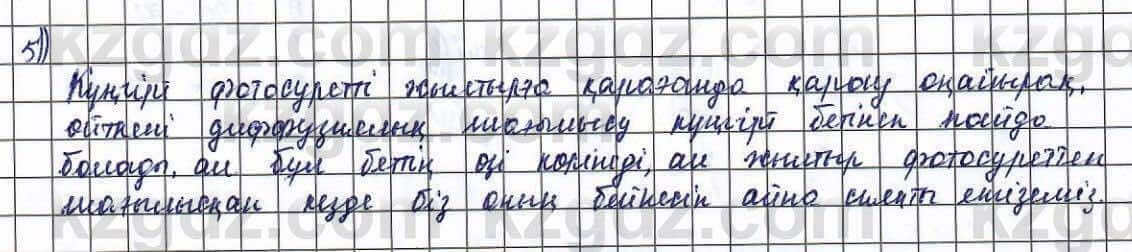 5)
Күңгірт фотосуретті жылтырға қарағанда қарау оңайырақ,
өйткені диффузиялық шағылысу күңгірт бетінен пайда
болады, ал бұл бетің өзі көрінеді, ал жылтыр фотосуреттен
шағылысқан кезде біз оның бейнесін айна сияқты енгіземіз.